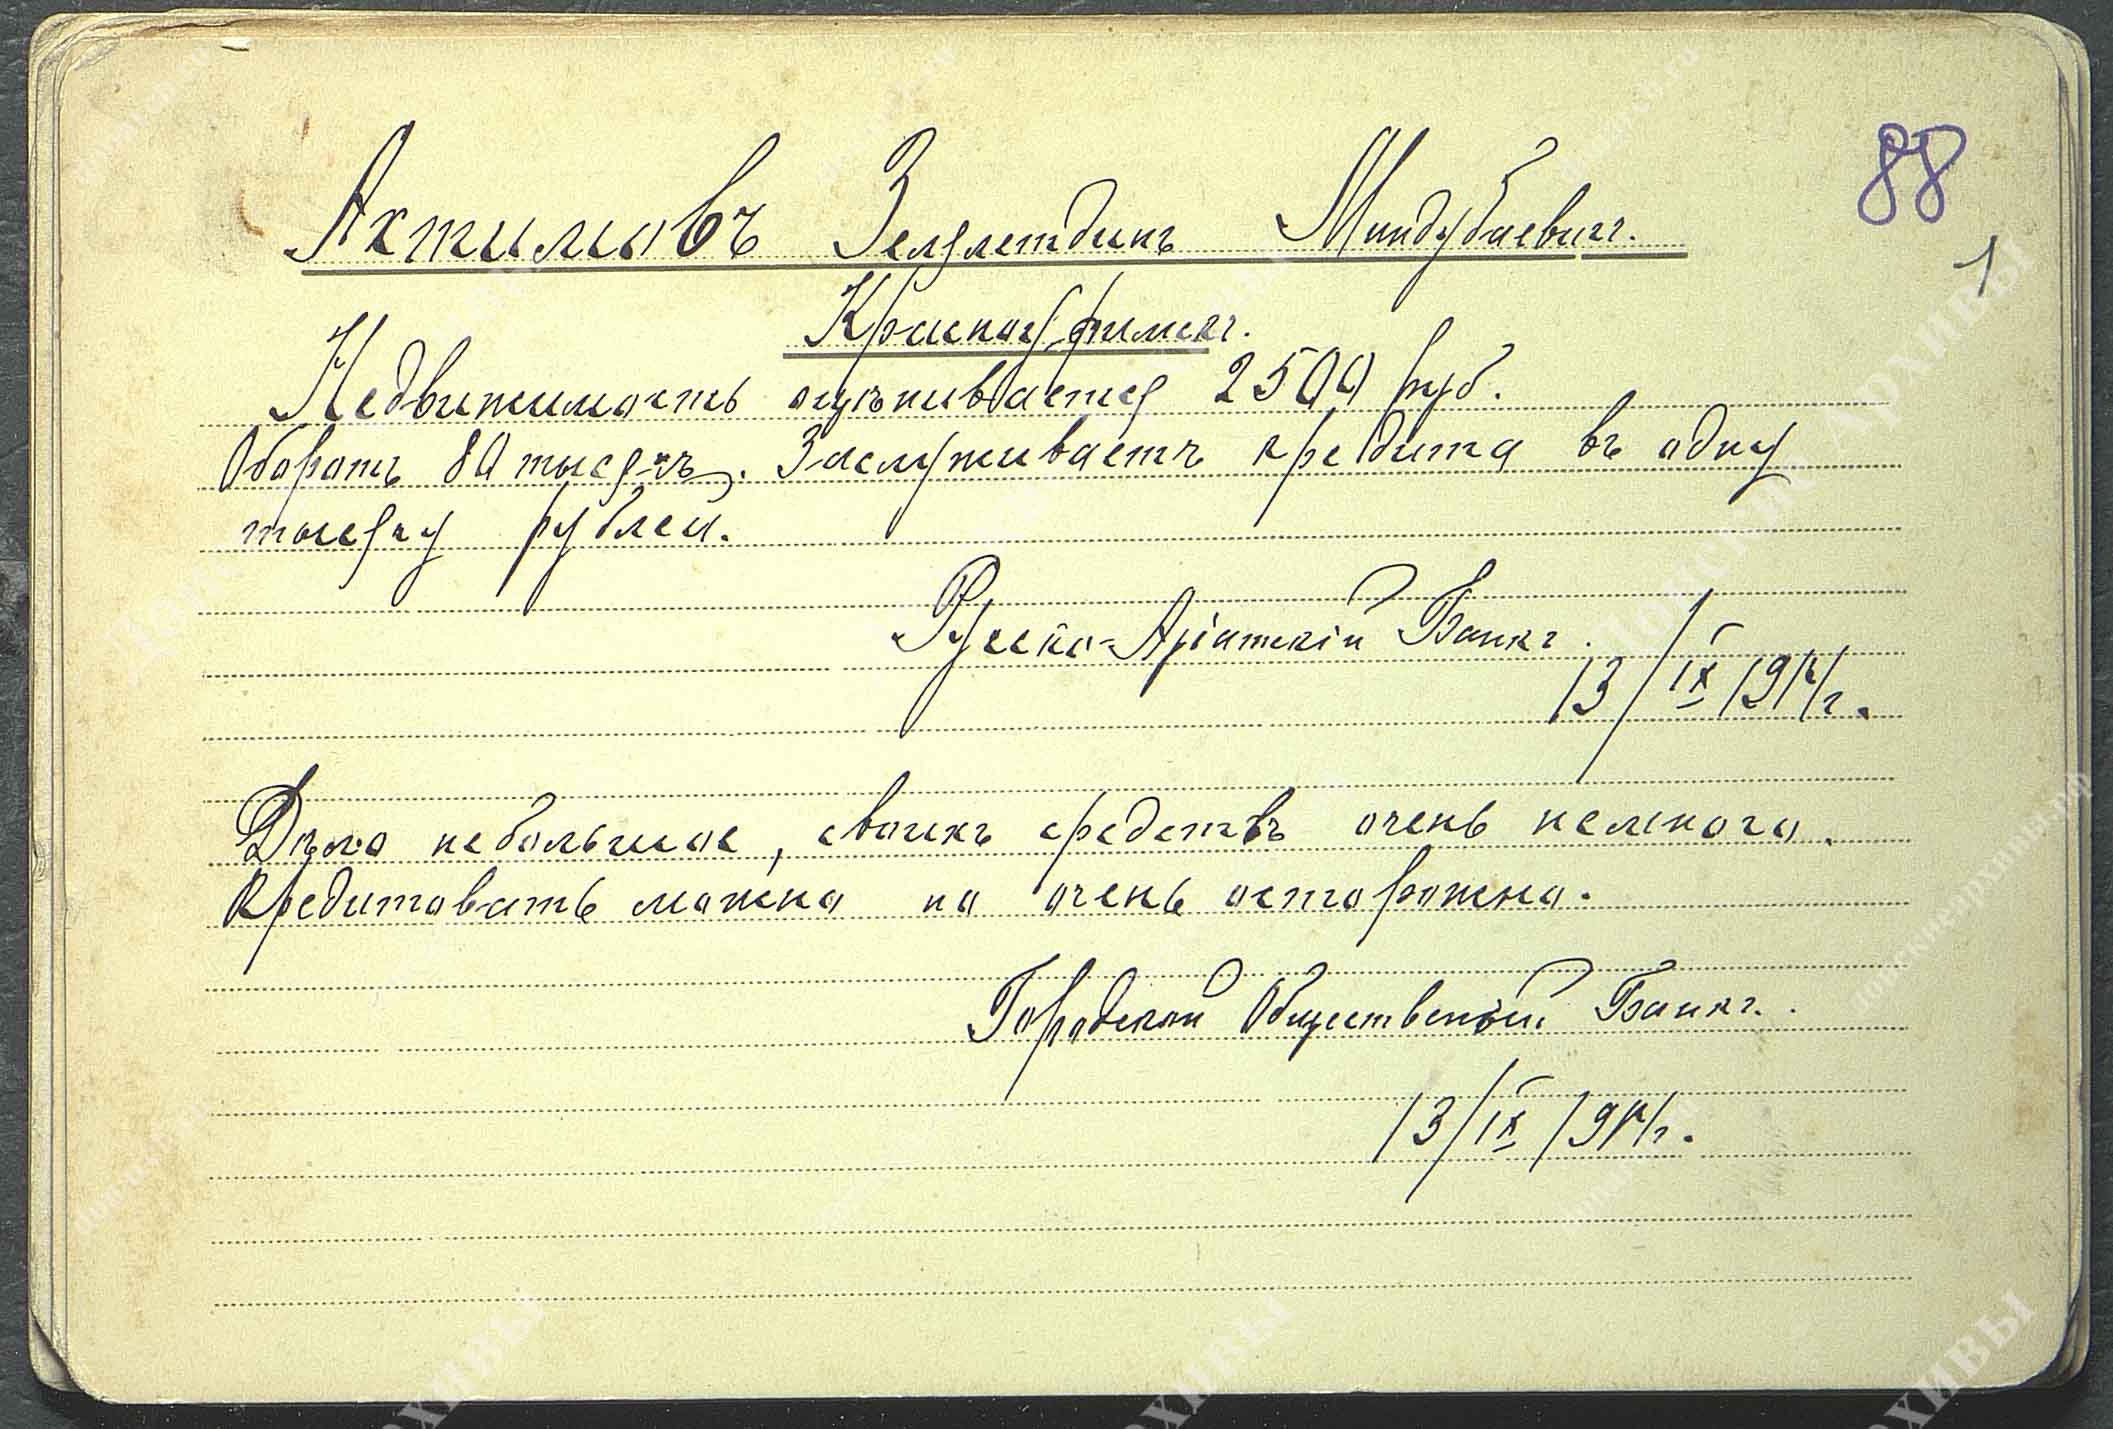 88
1
Ахтимовъ Зелялетдинъ Миндубаевичъ.
Красноуфимскъ.
Недвижимость оцѣнивается 2500 руб.
Оборотъ 80 тысячъ. Заслуживаетъ кредита въ одну
тысячу рублей.
Русско-Азіатскій Банкъ.
13/IX 1914 г.
Дѣло небольшое, своихъ средствъ очень немного.
Кредитовать можно но очень осторожно.
Городской Общественный Банкъ.
13/IX 1914 г.